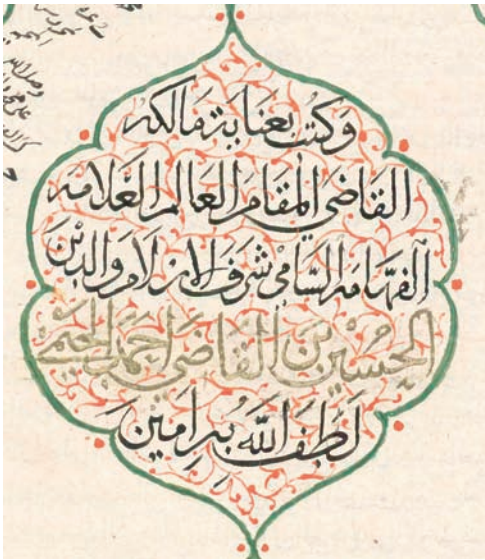 وكتب بعناية مالكه
القاضي المقام العالم العلامه
الفهامه السامي شرف الاسلام والدين
الحسين بن القاضي احمد
لطف الله به امين